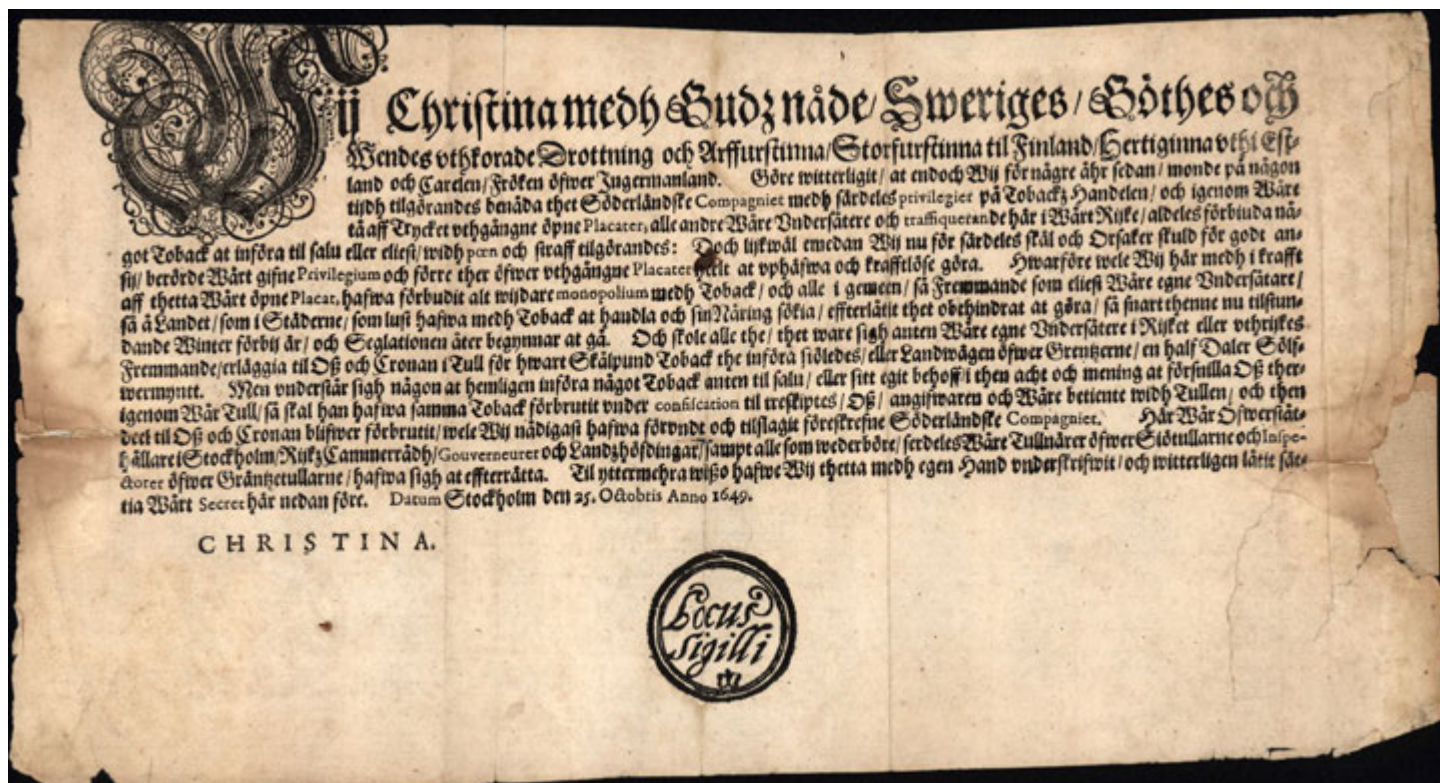 Wij Christina medh Gudz nåde/ Sweriges/ Göthes och
Wendes vthkorade Drottning och Arffurstinna/ Storfurstinna til Finland/ Hertiginna vthi Est-
land och Carelen/ Fröken öfwer Ingermanland. Göre witterligit/ at endoch Wij för någre åhr sedan/ monde på någon
tijdh tilgörandes benåda thet Söderländske Compagniet medh särdeles privilegier på Tobackz Handelen/ och igenom Wåre
tå aff Trycket vthgångne öpne Placater, alle andre Wåre Vndersåtere och traffiquerande här i Wårt Rijke/ aldeles förbiuda nå-
got Toback at införa til salu eller eliest/ widh pœn och straff tilgörandes: Doch lijkwäl emedan Wij nu för särdeles skäl och Orsaker skuld för godt an-
sij/ berörde Wårt gifne Privilegium och förre ther öfwer vthgångne Placater heelt at vphäfwa och krafftlöse göra. Hwarföre wele Wij här medh i krafft
aff thetta Wårt öpne Placat, hafwa förbudit alt wijdare monopolium medh Toback/ och alle i gemeen/ så Fremmande som eliest Wåre egne Vndersåtare/
så å Landet/ som i Städerne/ som lust hafwa medh Toback at handla och sin Näring sökia/ effterlåtit thet obehindrat at göra/ så snart thenne nu tilstun-
dande Winter förbij är/ och Seglationen åter begynnar at gå. Och skole alle the/ thet ware sigh anten Wåre egne Vndersåtere i Rijket eller vthrijkes
Fremmande/ erläggia til Oß och Cronan i Tull för hwart Skålpund Toback the införa siöledes/ eller Landwägen öfwer Grentzerne/ en half Daler Sölf-
wermyntt. Men vnderstår sigh någon at hemligen införa något Toback anten til salu/ eller sitt egit behoff/ i then acht och mening at försnilla Oß ther-
igenom Wår Tull/ så skal han hafwa samma Toback förbrutit vnder confiscation til treskiptes/ Oß/ angifwaren och Wåre betiente widh Tullen/ och then
deel til Oß och Cronan blifwer förbrutit/ wele Wij nådigast hafwa förvndt och tilslagit föreskrefne Söderländske Compagniet. Här Wår Öfwerståt-
hållare i Stockholm/ Rijkz Cammerrådh/ Gouverneurer och Landzhöfdingar/ sampt alle som wederböre/ serdeles Wåre Tullnärer öfwer Siötullarne och Inspe-
ctorer öfwer Gräntzetullarne/ hafwa sigh at effterrätta. Til yttermehra wißo hafwe Wij thetta medh egen Hand vnderskrifwit/ och witterligen låtit sät-
tia Wårt Secret här nedan före. Datum Stockholm den 25. Octobris Anno 1649.
CHRISTINA.
Locus
Sigilli